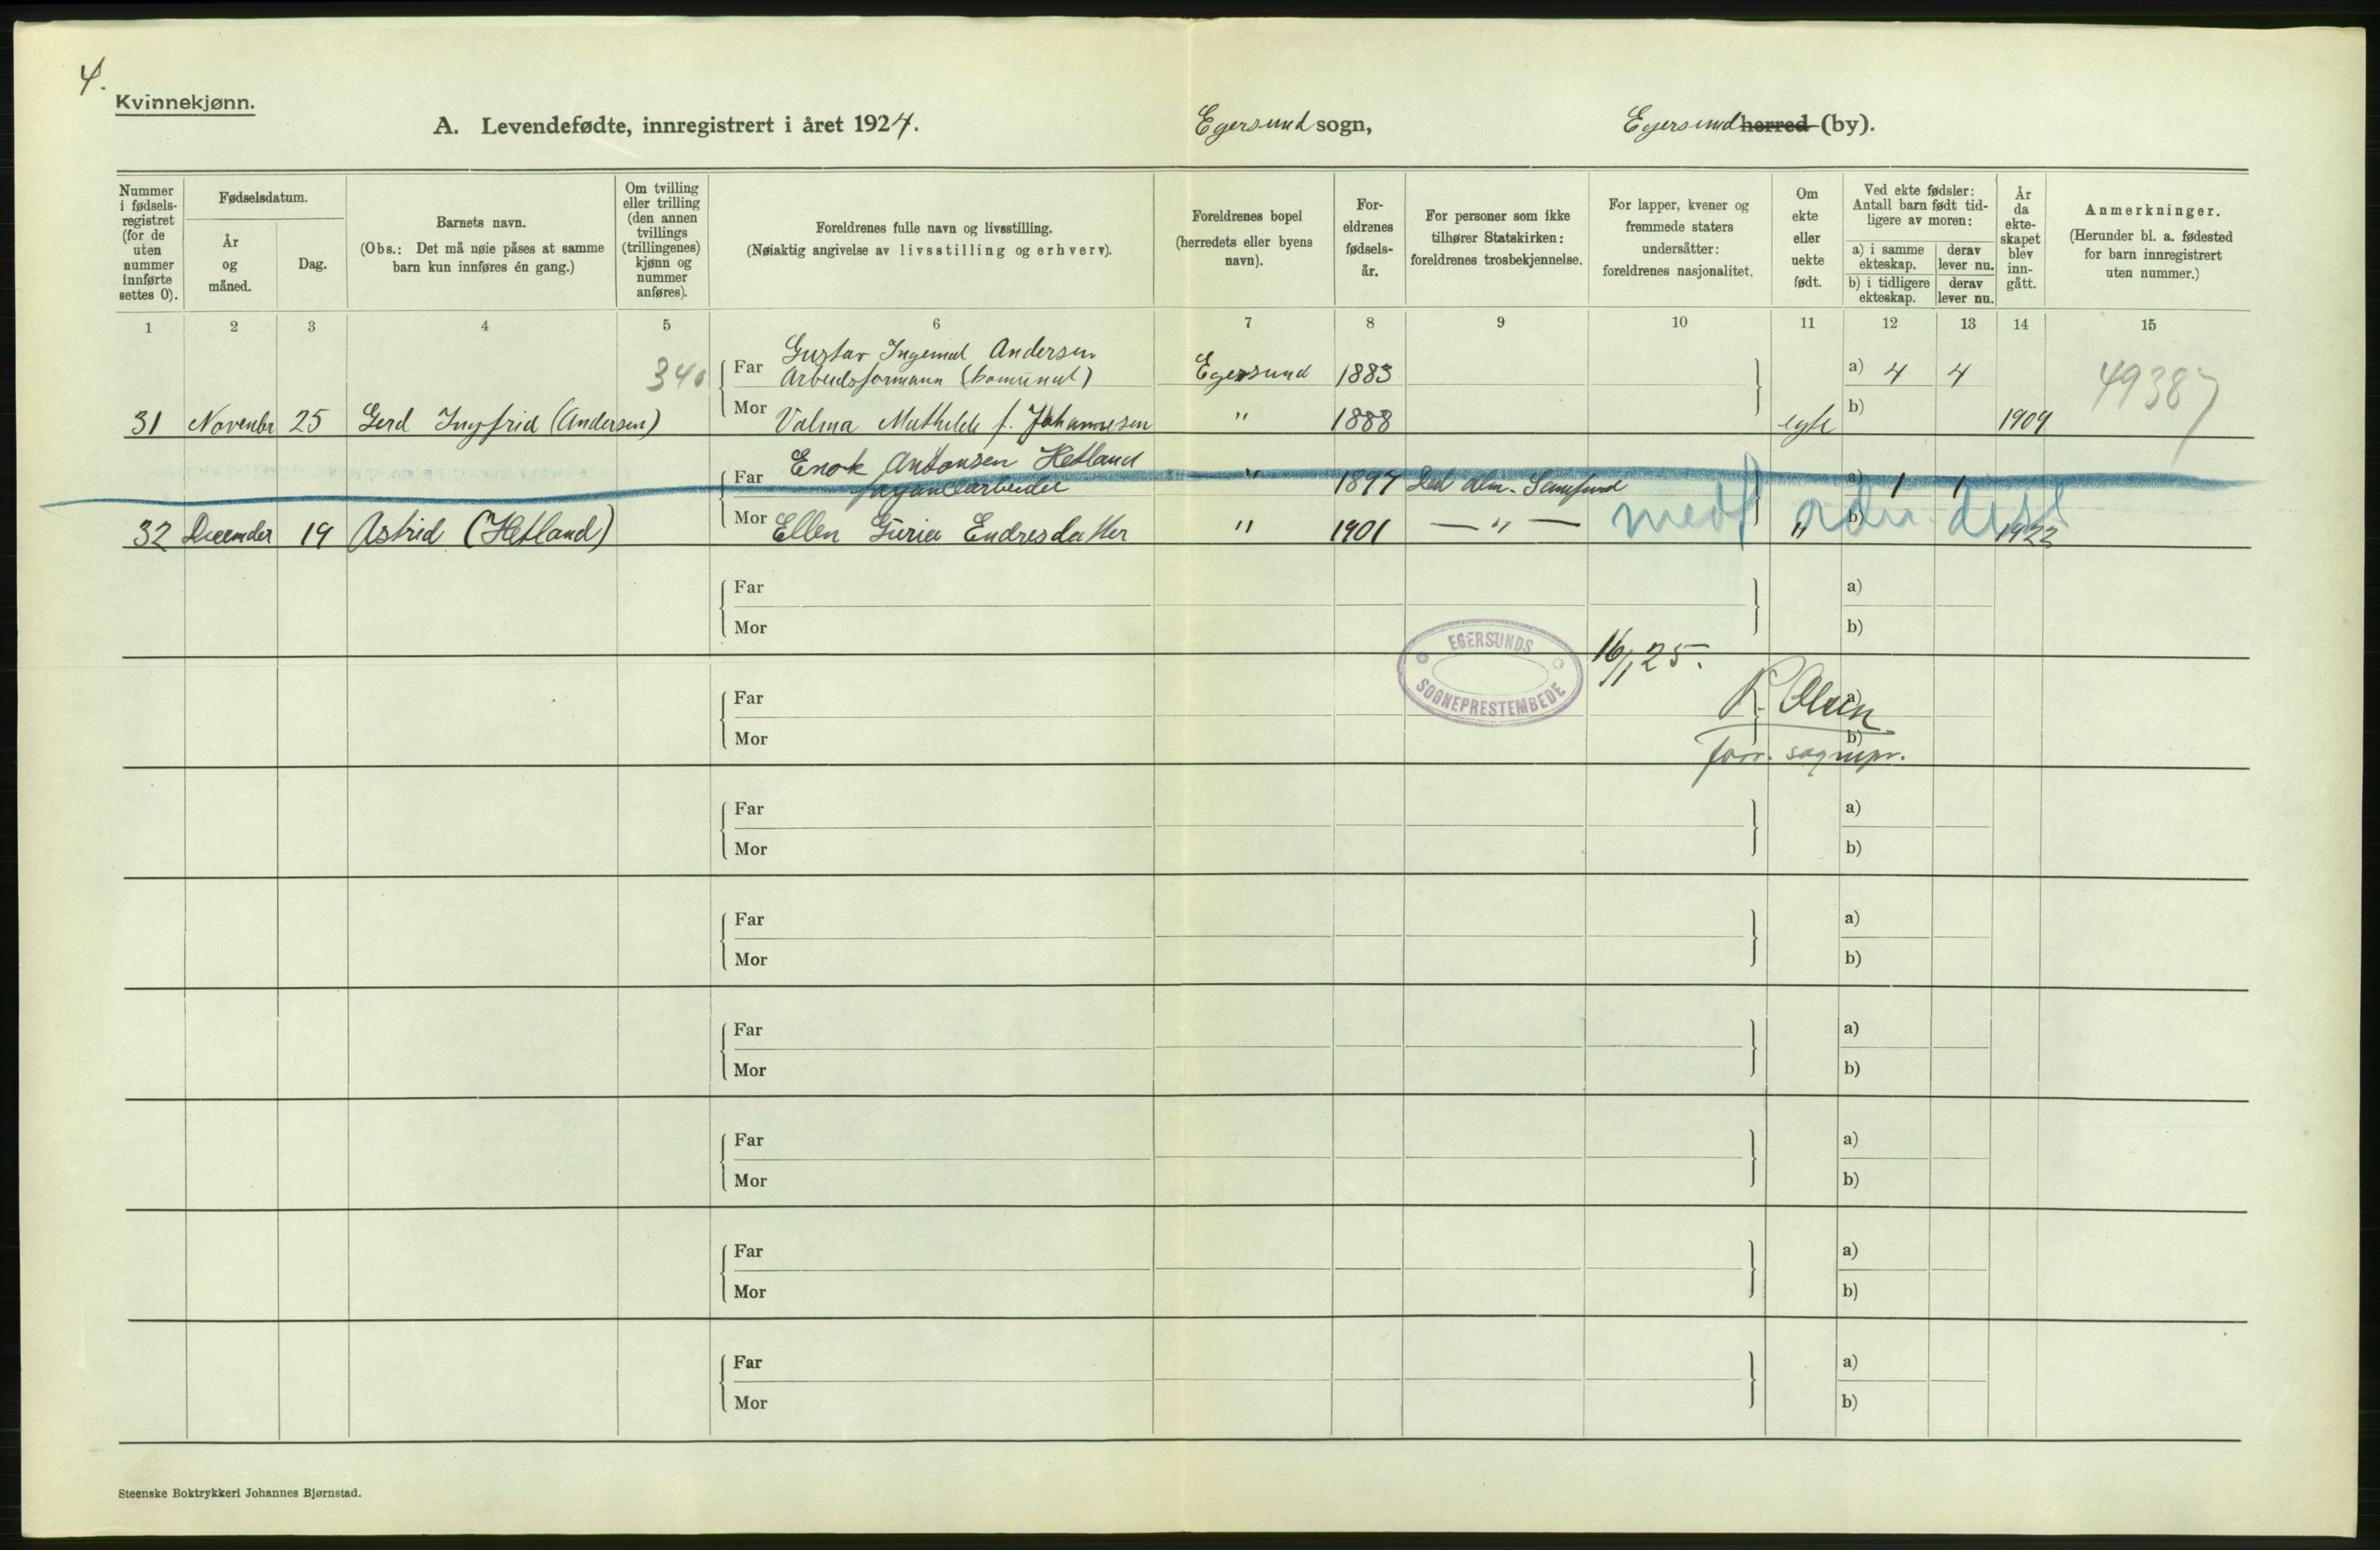 4.
Kvinnekjønn.
A. Levendefødte, innregistrert i året 1924. Egersund sogn, Egersund herred (by).
Nummer i fødsels-registret (for de uten nummer innførte settes 0).
Fødselsdatum.
År og måned.
Dag.
Barnets navn.
(Obs.: Det må nøie påses at samme barn kun innføres én gang.)
Om tvilling eller trilling (den annen tvillings (trillingenes) kjønn og nummer anføres).
Foreldrenes fulle navn og livsstilling.
(Nøiaktig angivelse av livsstilling og erhverv).
Foreldrenes bopel (herredets eller byens navn).
For-eldrenes fødsels-år.
For personer som ikke tilhører Statskirken: foreldrenes trosbekjennelse.
For lapper, kvener og fremmede staters undersåtter: foreldrenes nasjonalitet.
Om ekte eller uekte født.
Ved ekte fødsler: Antall barn født tid-ligere av moren:
a) i samme ekteskap. derav lever nu.
b) i tidligere ekteskap. derav lever nu.
År da ekte-skapet blev inn-gått.
Anmerkninger.
(Herunder bl. a. fødested for barn innregistrert uten nummer.)
1 2 3 4 5 6 7 8 9 10 11 12 13 14 15
Gustav Ingemal Andersen
340 Far Arbeidsformann (komunal) Egersund 1883 a) 4 4 49387
31 Novenbr 25 Gerd Ingfrid (Andersen) Mor Valma Mathilde f. Johannesen " 1888 egte b) 1909
Enok Antonsen Hetland
Far " 1897 Det alm. Samfund a) 1 1
32 December 19 Astrid (Hetland) Mor Ellen Guria Endresdatter " 1901 — " — " b) 1922
Far a)
Mor b)
EGERSUNDS SOGNEPRESTEMBEDE
16/1 25.
Far a)
K. Olsen
Mor b)
sognepr.
Far a)
Mor b)
Far a)
Mor b)
Far a)
Mor b)
Far a)
Mor b)
Far a)
Mor b)
Far a)
Mor b)
Steenske Boktrykkeri Johannes Bjørnstad.